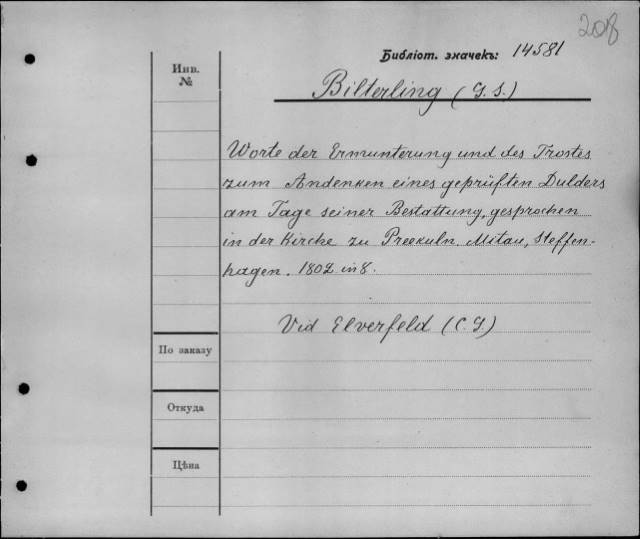 208
Библіот. значекъ: 14581
Инв.
№
Bilterling (G. S.)
Worte der Ermunterung und des Trostes
zum Andenken eines geprüften Dulders
am Tage seiner Bestattung, gesprochen
in der Kirche zu Preekuln. Mitau, Steffen-
hagen. 1802 in 8.
Vid Elverfeld (C. G)
По заказу
Откуда
Цѣна